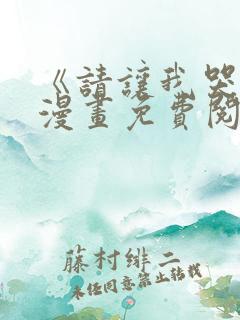 《請讓我哭
漫畫免費閱
藤村緋二
未经同意禁止转载